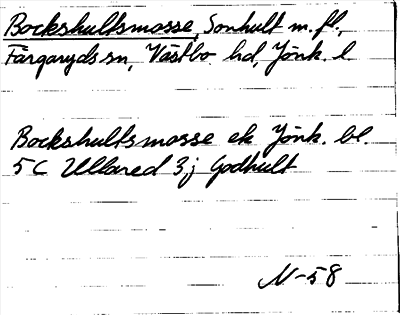 Bockshultsmosse, Sonhult m. fl.,
Färgaryds sn, Västbo hd, Jönk. l
Bockshultsmosse ek Jönk. bl.
5C Ullared 3j Godhult
N-58